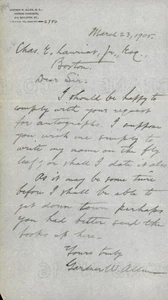 March 23, 1905.
Chas. E. Lauriat, Jr., Esq.
Boston.
Dear Sir:
I should be happy to
comply with your request
for autographs. I suppose
you wish me simply to
write my name on the fly
leaf, or shall I date it also
As it may be some time
before I shall be able to
get down town perhaps
you had better send the
books up here.
Yours truly
Gardner W. Allen